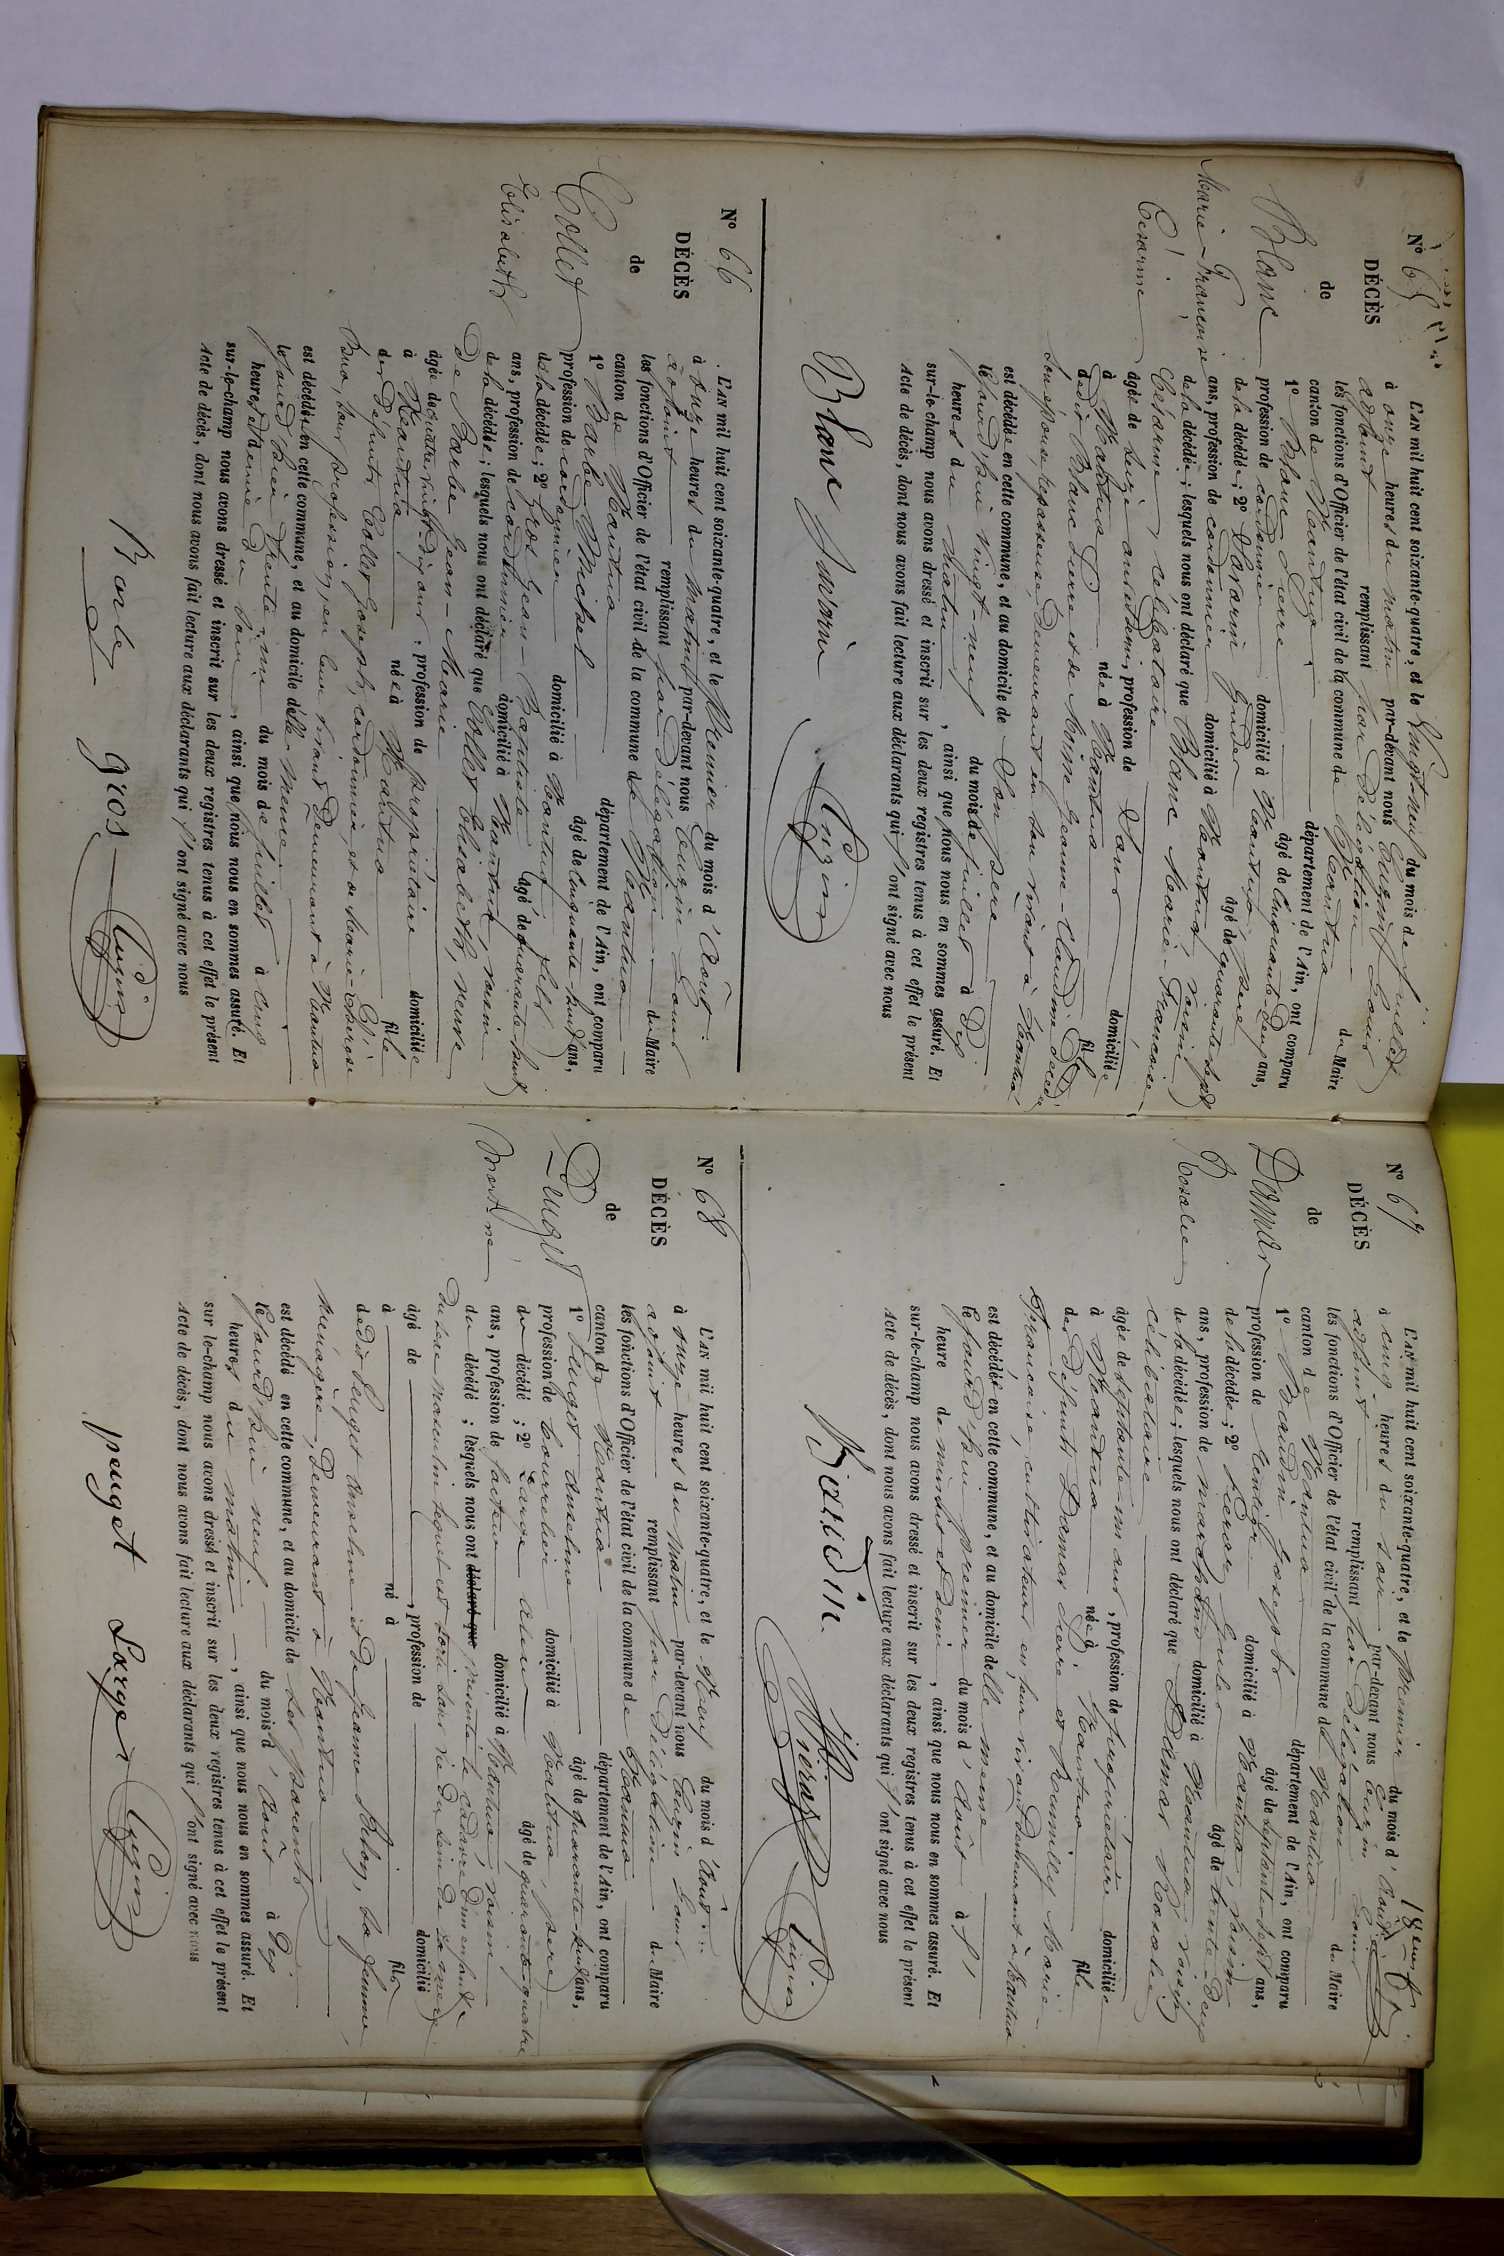 N° 65
DÉCÈS
de
Blanc
Marie-Françoise
Césarine
L'AN mil huit cent soixante-quatre, et le Vingt neuf du mois de juillet
à onze heures du matin par-devant nous Eugin Louis
adjoint remplissant par délégation du Maire
les fonctions d'Officier de l'état civil de la commune de Nantua
canton de Nantua département de l'Ain, ont comparu
1° Blanc Pierre âgé de cinquante-deux ans,
profession de cordonnier domicilié à Nantua, père
de la décédée; 2° Savarin âgé de quarante sept
ans, profession de cordonnier domicilié à Nantua, voisin
de la décédée; lesquels nous ont déclaré que Blanc Marie-Françoise
Césarine, célibataire
âgée de seize ans et demi, profession de sans domiciliée
à Nantua née à Nantua fille
de dit Blanc Pierre et de Jeanne-Claudine décédée
son épouse, repasseuse, demeurant en son vivant à Nantua
est décédée en cette commune, et au domicile de son père
le jourd'hui vingt-neuf du mois de juillet à dix
heures du matin, ainsi que nous nous en sommes assuré. Et
sur-le-champ nous avons dressé et inscrit sur les deux registres tenus à cet effet le présent
acte de décès, dont nous avons fait lecture aux déclarants qui l'ont signé avec nous
Blanc
N° 66
DÉCÈS
de
Collet
Elisabeth
L'AN mil huit cent soixante-quatre, et le Premier du mois d'Août
à onze heures du matin par-devant nous Eugin Louis
adjoint remplissant par délégation du Maire
les fonctions d'Officier de l'état civil de la commune de Nantua
canton de Nantua département de l'Ain, ont comparu
1° Barbe Michel âgé de cinquante huit ans,
profession de cordonnier domicilié à Nantua, fils
de la décédée; 2° Gros Jean-Baptiste âgé de quarante huit
ans, profession de cordonnier domicilié à Nantua, voisin
de la décédée; lesquels nous ont déclaré que Collet Elisabeth, veuve
de Barbe Jean-Marie
âgée de quatre-vingt-dix ans, profession de propriétaire domiciliée
à Nantua née à Nantua fille
des défunts Collet Joseph, cordonnier, et de Marie-Thérèse
sans profession, en leur vivant demeurant à Nantua
est décédée en cette commune, et au domicile d'elle-même
le jourd'hier trente-un du mois de juillet à cinq
heures et demie du soir, ainsi que nous nous en sommes assuré. Et
sur-le-champ nous avons dressé et inscrit sur les deux registres tenus à cet effet le présent
acte de décès, dont nous avons fait lecture aux déclarants qui l'ont signé avec nous
Barbe gros
N° 67
DÉCÈS
de
Damas
Rosalie
L'AN mil huit cent soixante-quatre, et le premier du mois d'Août
à cinq heures du soir par-devant nous Eugin Louis
adjoint remplissant par délégation du Maire
les fonctions d'Officier de l'état civil de la commune de Nantua
canton de Nantua département de l'Ain, ont comparu
1° Baudin Joseph âgé de septante-sept ans,
profession de domicilié à Nantua, voisin
de la décédée; 2° âgé de trente-deux
ans, profession de marchand domicilié à Nantua, voisin
de la décédée; lesquels nous ont déclaré que Damas Rosalie
célibataire
âgée de septante-un ans, profession de propriétaire domiciliée
à Nantua née à Nantua fille
des défunts Damas Pierre et Marie-
Françoise, cultivateurs en leur vivant demeurant à Nantua
est décédée en cette commune, et au domicile d'elle même
le jourd'hui premier du mois d'Août à l'
heure de minuit et demi, ainsi que nous nous en sommes assuré. Et
sur-le-champ nous avons dressé et inscrit sur les deux registres tenus à cet effet le présent
acte de décès, dont nous avons fait lecture aux déclarants qui l'ont signé avec nous
N° 68
DÉCÈS
de
Peuget
Mort-né
L'AN mil huit cent soixante-quatre, et le Neuf du mois d'Août
à onze heures du matin par-devant nous Eugin Louis
adjoint remplissant par délégation du Maire
les fonctions d'Officier de l'état civil de la commune de Nantua
canton de Nantua département de l'Ain, ont comparu
1° Peuget Anselme âgé de quarante-huit ans,
profession de bourrelier domicilié à Nantua, père
du décédé; 2° Large âgé de quarante-quatre
ans, profession de facteur domicilié à Nantua, voisin
du décédé; lesquels nous ont déclaré que présenté le cadavre d'un enfant
du sexe masculin lequel est sorti sans vie du sein de sa mère
âgé de , profession de domicilié
à né à fils
de dit Peuget Anselme et de Jeanne , sa femme,
ménagère, demeurant à Nantua
est décédé en cette commune, et au domicile de ses parents
le jourd'hui neuf du mois d'Août à dix
heures du matin, ainsi que nous nous en sommes assuré. Et
sur-le-champ nous avons dressé et inscrit sur les deux registres tenus à cet effet le présent
acte de décès, dont nous avons fait lecture aux déclarants qui l'ont signé avec nous
peuget Large